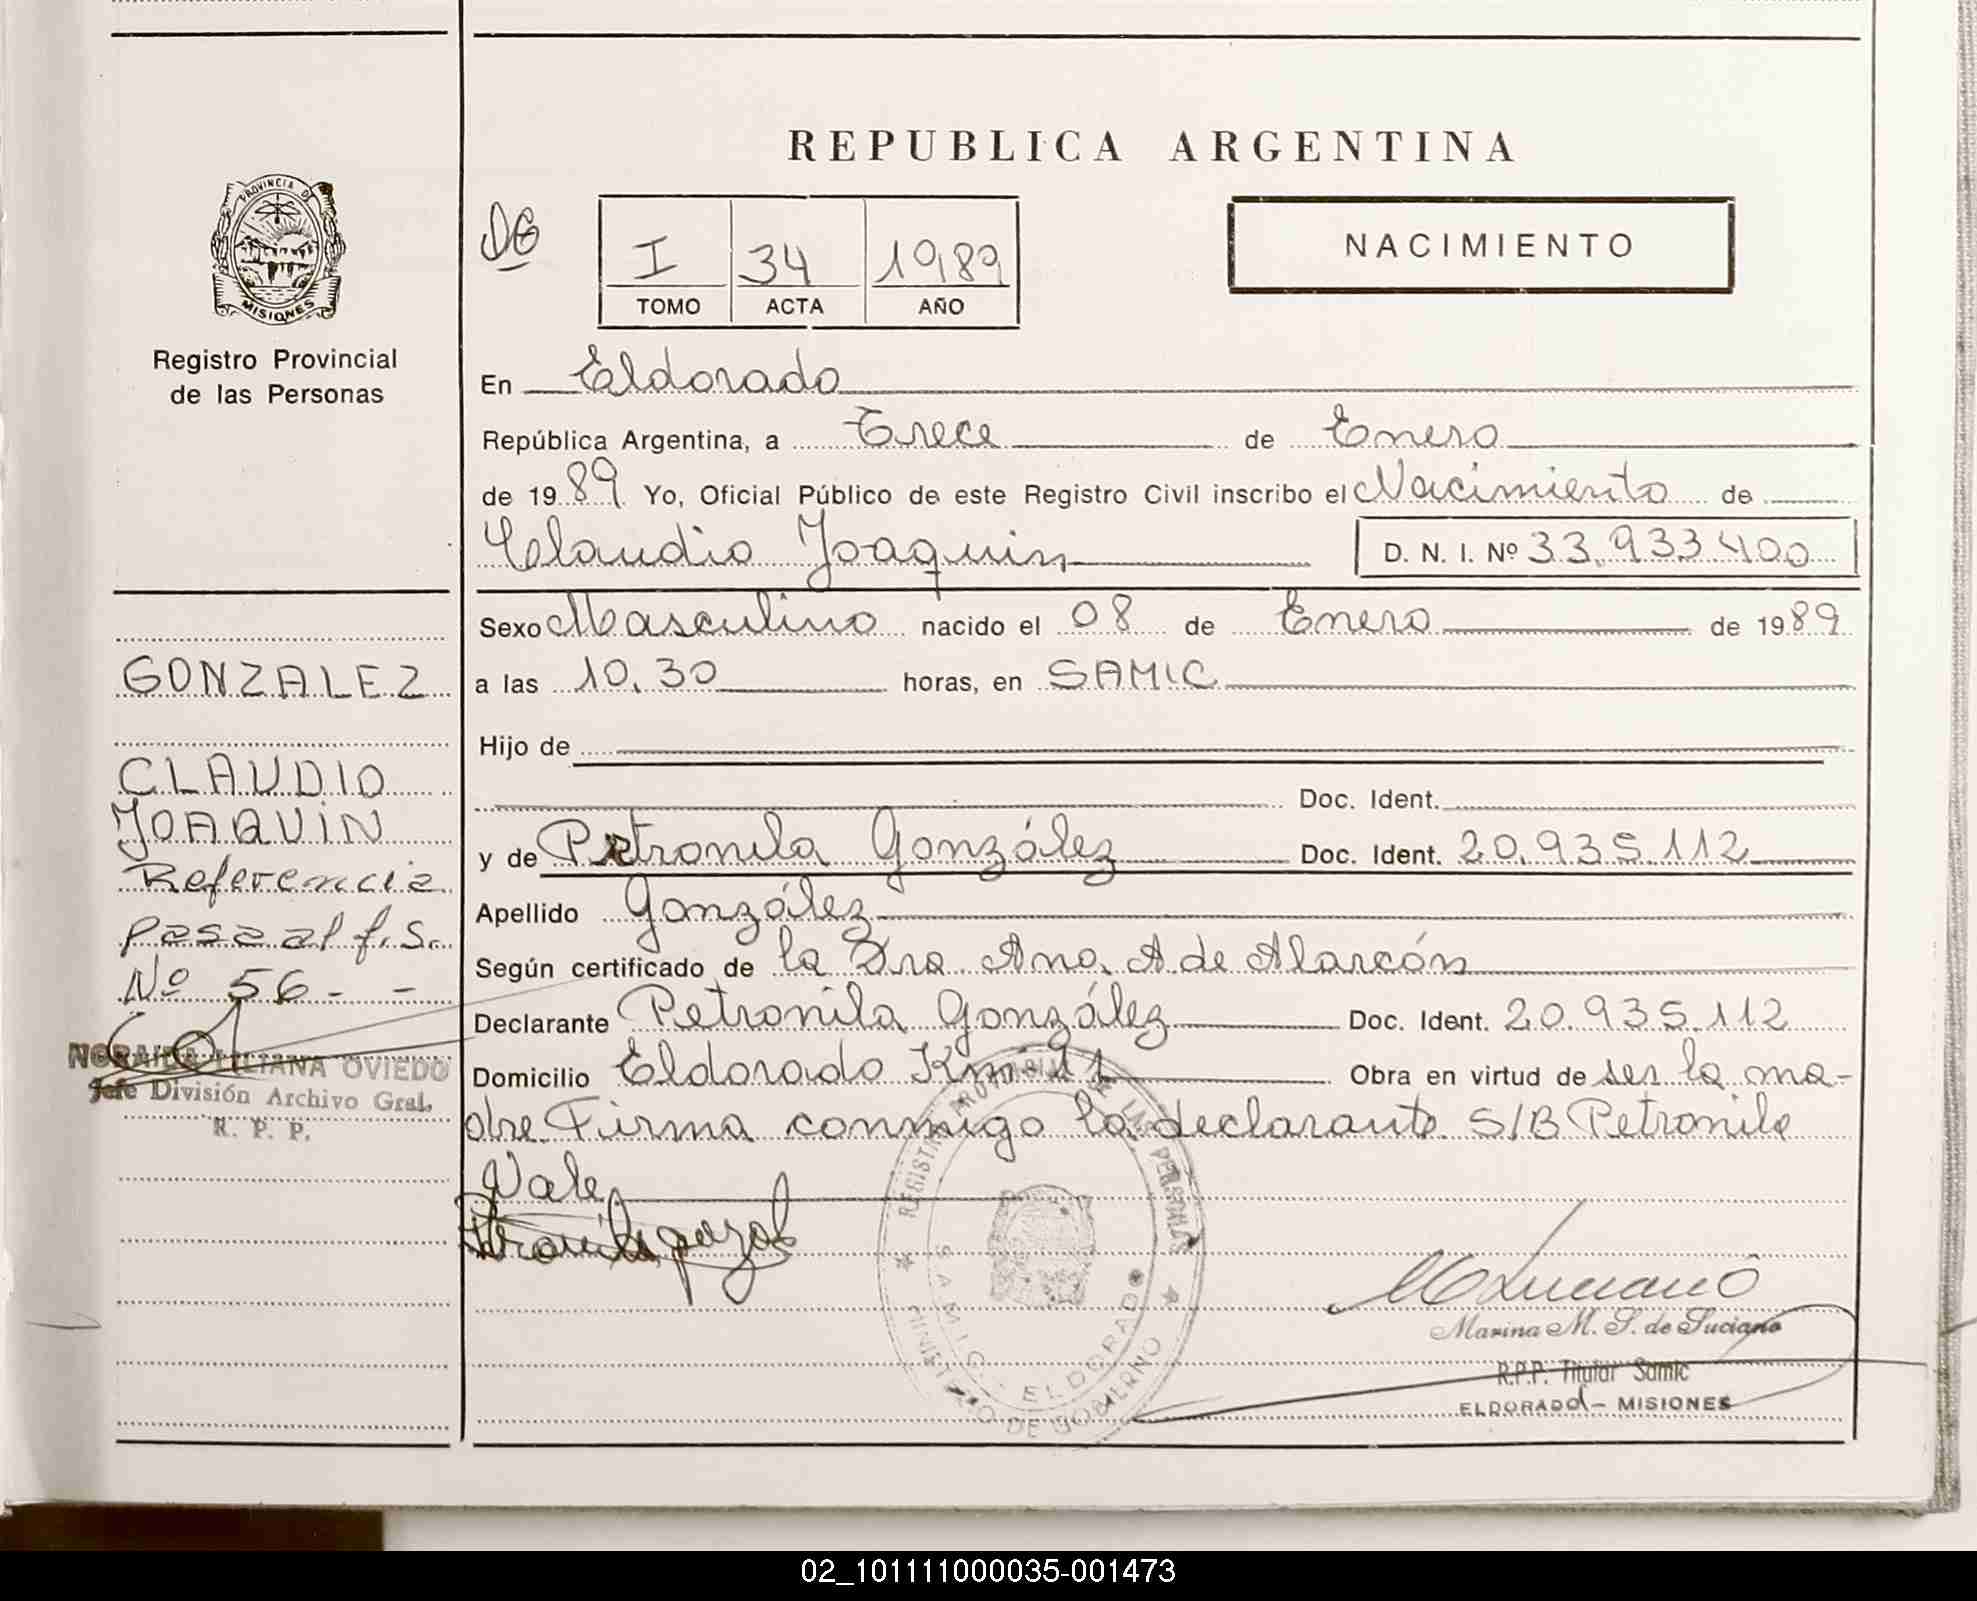 REPUBLICA ARGENTINA
PROVINCIA DE
MISIONES
Registro Provincial
de las Personas
I 34 1989
TOMO ACTA AÑO
NACIMIENTO
En Eldorado
República Argentina, a Trece de Enero
de 1989 Yo, Oficial Público de este Registro Civil inscribo el Nacimiento de
Claudio Joaquin D. N. I. Nº 33.933.400
Sexo Masculino nacido el 08 de Enero de 1989
a las 10.30 horas, en SAMIC
Hijo de
Doc. Ident.
y de Petronila González Doc. Ident. 20.935.112
Apellido González
Según certificado de la Dra Ana A de Alarcón
Declarante Petronila González Doc. Ident. 20.935.112
Domicilio Eldorado Km 11 Obra en virtud de ser la ma-
dre Firma conmigo la declarante S/B Petronila
Vale
GONZALEZ
CLAUDIO
JOAQUIN
Referencia
pasa al f.S.
Nº 56 - -
NORAIDA LILIANA OVIEDO
Jefe División Archivo Gral.
R. P. P.
REGISTRO PROVINCIAL DE LAS PERSONAS
SAMIC - ELDORADO
MINISTERIO DE GOBIERNO
Marina M. S. de Luciano
R.P.P. Titular Samic
ELDORADO - MISIONES
02_101111000035-001473